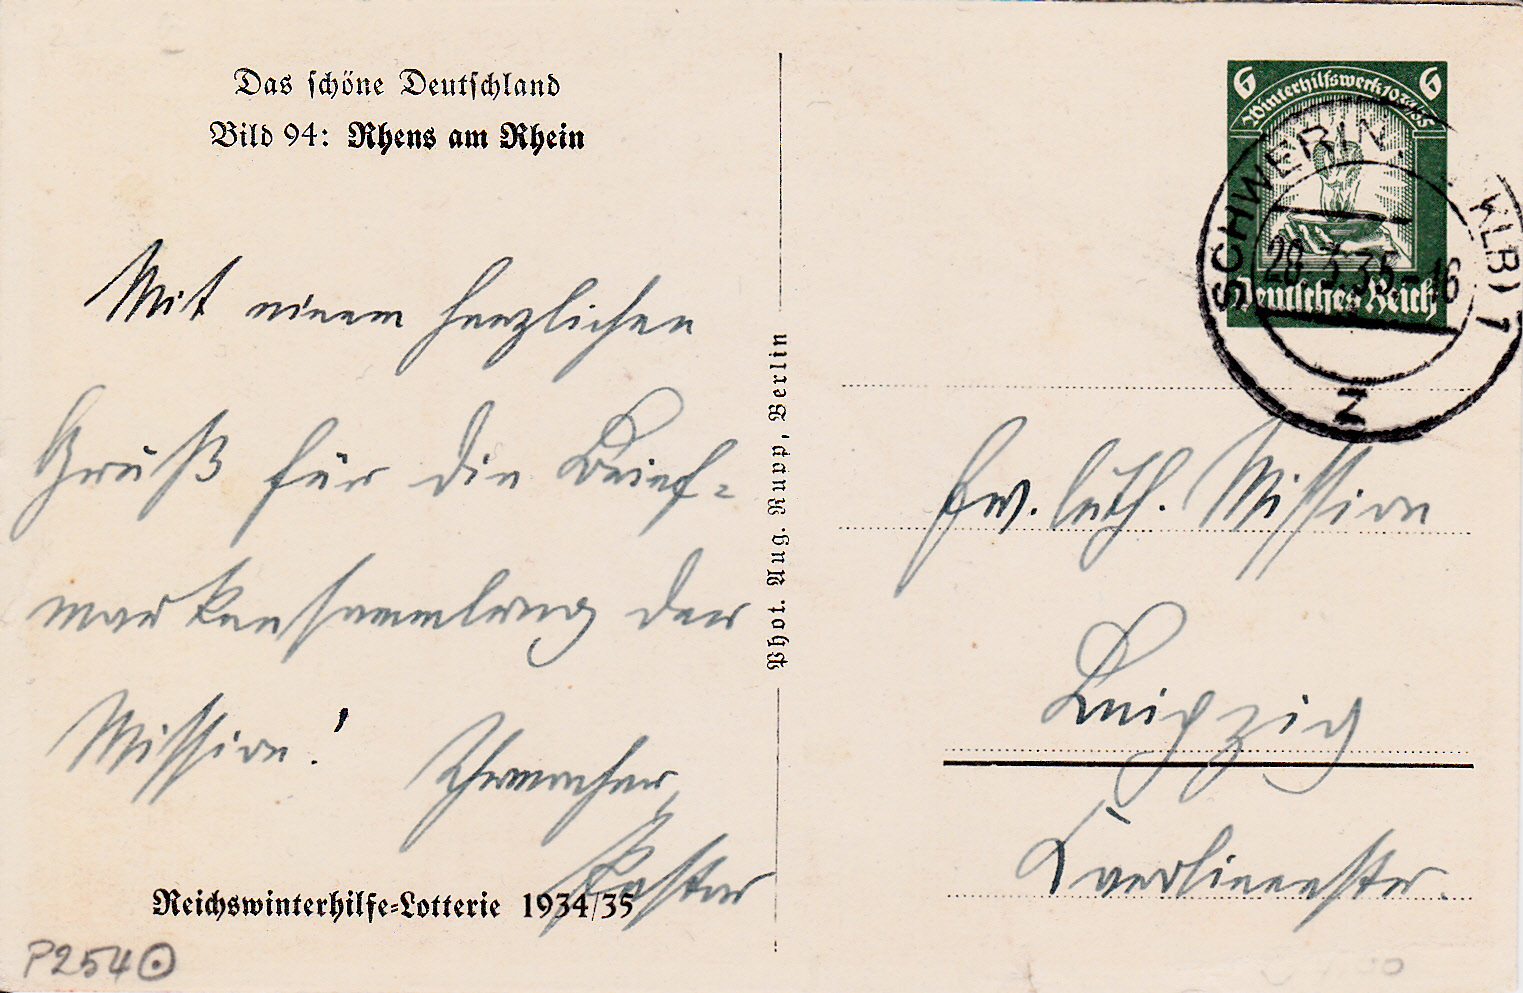 Das schöne Deutschland
Bild 94: Rhens am Rhein
Mit einem herzlichen
Gruß für die Brief-
markensammlung der
Mission!
Pastor
Reichswinterhilfe-Lotterie 1934/35
P254
Phot. Aug. Rupp, Berlin
6 6
Winterhilfswerk 1934/35
Deutsches Reich
SCHWERIN KLB) 1
35-16
Z
Ev. luth. Mission
Leipzig
Karolinenstr.